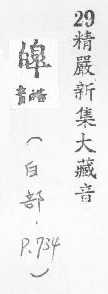 29 精嚴新集大藏音
音
（白部．P.734）